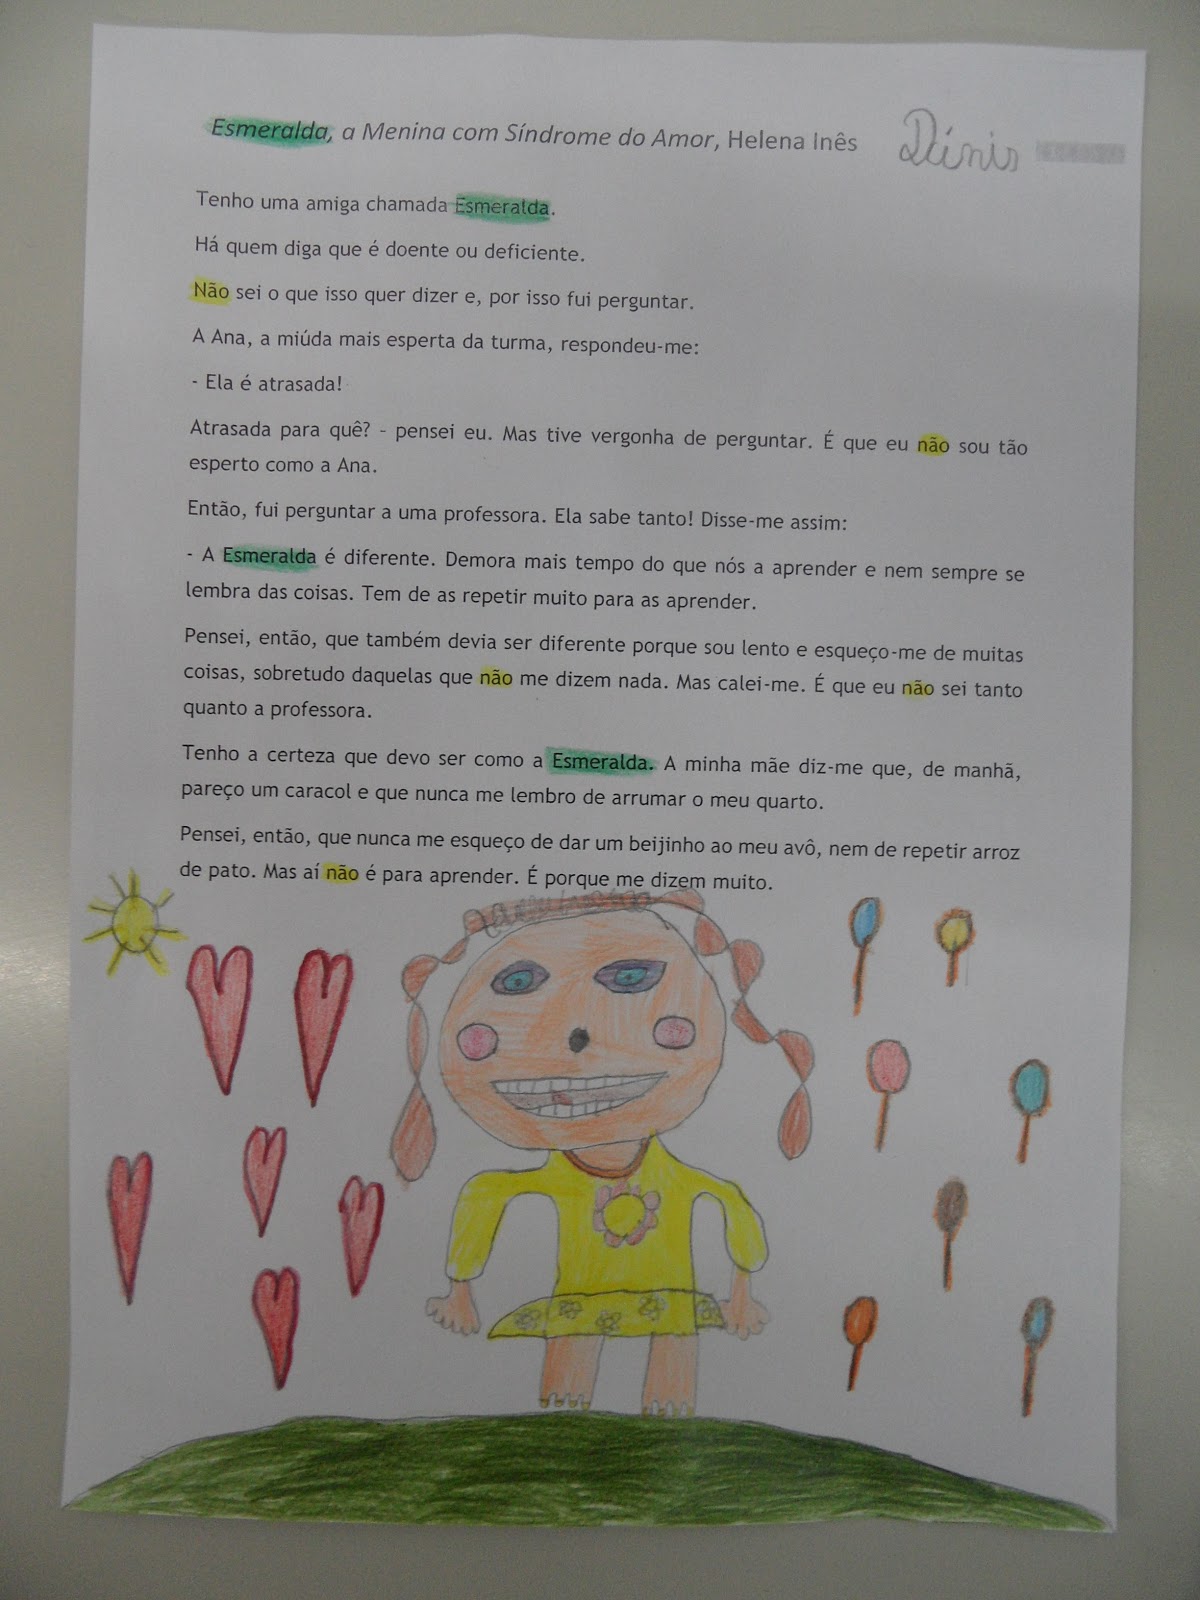 Esmeralda, a Menina com Síndrome do Amor, Helena Inês
Dinis
Tenho uma amiga chamada Esmeralda.
Há quem diga que é doente ou deficiente.
Não sei o que isso quer dizer e, por isso fui perguntar.
A Ana, a miúda mais esperta da turma, respondeu-me:
- Ela é atrasada!
Atrasada para quê? - pensei eu. Mas tive vergonha de perguntar. É que eu não sou tão
esperto como a Ana.
Então, fui perguntar a uma professora. Ela sabe tanto! Disse-me assim:
- A Esmeralda é diferente. Demora mais tempo do que nós a aprender e nem sempre se
lembra das coisas. Tem de as repetir muito para as aprender.
Pensei, então, que também devia ser diferente porque sou lento e esqueço-me de muitas
coisas, sobretudo daquelas que não me dizem nada. Mas calei-me. É que eu não sei tanto
quanto a professora.
Tenho a certeza que devo ser como a Esmeralda. A minha mãe diz-me que, de manhã,
pareço um caracol e que nunca me lembro de arrumar o meu quarto.
Pensei, então, que nunca me esqueço de dar um beijinho ao meu avô, nem de repetir arroz
de pato. Mas aí não é para aprender. É porque me dizem muito.